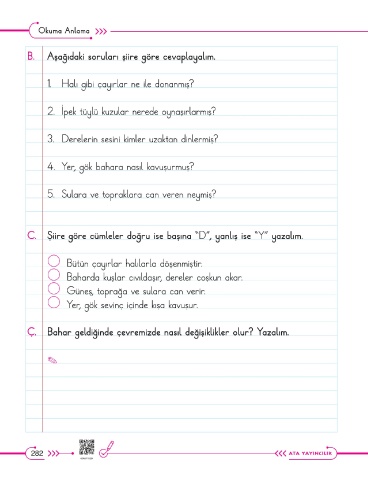 Okuma Anlama
B. Aşağıdaki soruları şiire göre cevaplayalım.
1. Halı gibi çayırlar ne ile donanmış?
2. İpek tüylü kuzular nerede oynaşırlarmış?
3. Derelerin sesini kimler uzaktan dinlermiş?
4. Yer, gök bahara nasıl kavuşurmuş?
5. Sulara ve topraklara can veren neymiş?
C. Şiire göre cümleler doğru ise başına "D", yanlış ise "Y" yazalım.
Bütün çayırlar halılarla döşenmiştir.
Baharda kuşlar cıvıldaşır, dereler coşkun akar.
Güneş, toprağa ve sulara can verir.
Yer, gök sevinç içinde kışa kavuşur.
Ç. Bahar geldiğinde çevremizde nasıl değişiklikler olur? Yazalım.
282
ATA YAYINCILIK